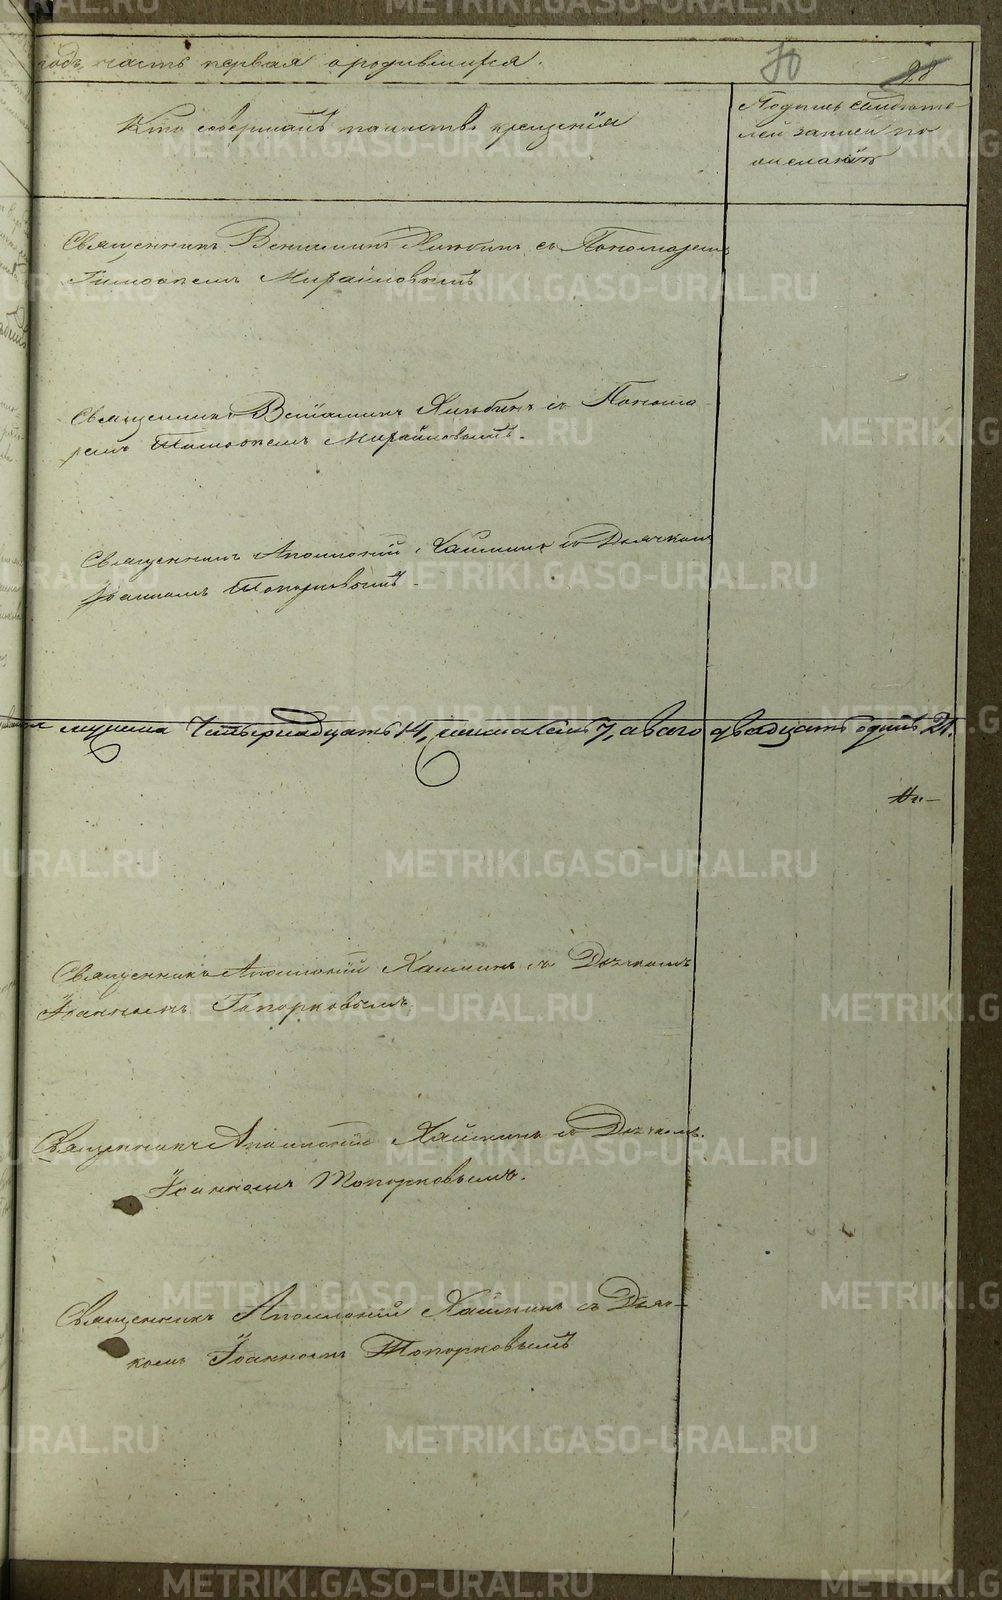 годъ, часть первая о родившихся.
70
28
Кто совершалъ таинство крещенія
Подпись свидѣте-
лей записи по
желанію
Священникъ Веніаминъ с Пономаремъ
Тимофеемъ Мирайловымъ
Священникъ Веніаминъ съ Понома-
ремъ Тимофеемъ Мирайловымъ.
Священникъ Аполлоній Хаминъ съ Дьячкомъ
Іоанномъ Топорковымъ.
мужеска Четырнадцать 14, женска семь 7, а всего двадцать одинъ 21.
Священникъ Аполлоній Хаминъ съ Дьячкомъ
Іоанномъ Топорковымъ.
Священникъ Аполлоній Хаминъ съ Дьячкомъ.
Іоанномъ Топорковымъ.
Священникъ Аполлоній Хаминъ съ Дьяч-
комъ Іоанномъ Топорковымъ
METRIKI.GASO-URAL.RU